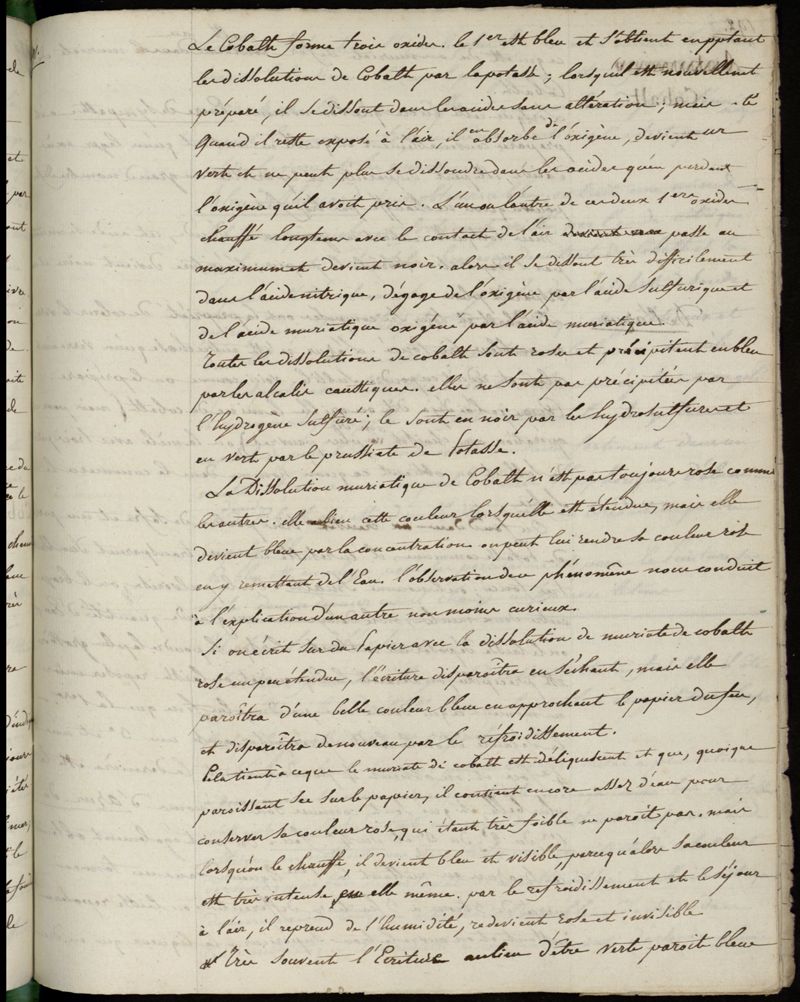 Le Cobalt forme trois oxides. le 1er est bleu et s'obtient en pptant
les dissolutions de Cobalt par la potasse ; lorsqu'il est nouvellement
préparé, il se dissout dans les acides sans altération ; mais
Quand il reste exposé à l'air, il en absorbe de l'oxigène, devient
vert et ne peut plus se dissoudre dans les acides qu'en perdant
l'oxigène qu'il avoit pris. L'un ou l'autre de ces deux 1ers oxides
chauffé longtems avec le contact de l'air passe au
maximum et devient noir. alors il se dissout très difficilement
dans l'acide nitrique, dégage de l'oxigène par l'acide sulfurique et
de l'acide muriatique oxigéné par l'acide muriatique.
Toutes les dissolutions de cobalt sont roses et précipitent en bleu
par les alcalis caustiques. elles ne sont pas précipitées par
l'hydrogène sulfuré ; le sont en noir par les hydrosulfures et
en vert par le prussiate de Potasse.
La Dissolution muriatique de Cobalt n'est pas toujours rose comme
les autres. elle a bien cette couleur lorsqu'elle est étendue, mais elle
devient bleue par la concentration on peut lui rendre sa couleur rose
en y remettant de l'Eau. l'observation de ce phénomène nous conduit
à l'explication d'un autre non moins curieux.
Si on écrit sur du Papier avec la dissolution de muriate de cobalt
rose un peu étendue, l'écriture disparoîtra en séchant, mais elle
paroîtra d'une belle couleur bleue en approchant le papier du feu,
et disparoîtra de nouveau par le réfroidissement.
Cela tient à ce que le muriate de cobalt est déliquescent et que, quoique
paroissant sec sur le papier, il contient encore assez d'eau pour
conserver sa couleur rose, qui étant très foible ne paroit pas. mais
lorsqu'on le chauffe, il devient bleu et visible, parcequ'alors sa couleur
est très intense par elle même. par le refroidissement et le séjour
à l'air, il reprend de l'humidité, redevient rose et invisible
Très souvent l'Ecriture au lieu d'être verte paroit bleue